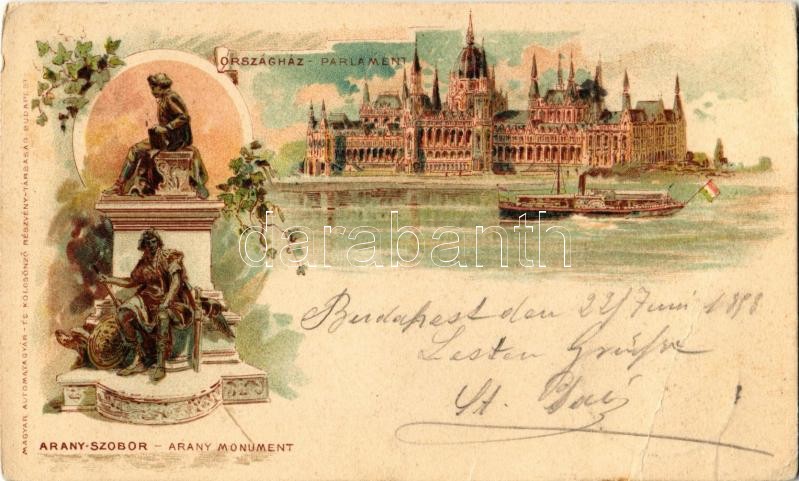 ORSZÁGHÁZ - PARLAMENT
MAGYAR AUTOMATAGYÁR - ÉS KÖLCSÖNZŐ RÉSZVÉNY-TÁRSASÁG BUDAPEST
darabanth
Budapest den 22/Juni 1898
Besten Grüße
St.
ARANY-SZOBOR - ARANY MONUMENT